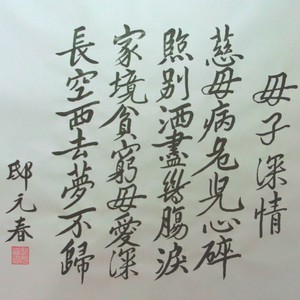 母子深情
慈母病危兒心碎
臨别洒盡幾腸淚
家境貧窮母愛深
長空西去夢不歸
邸元春